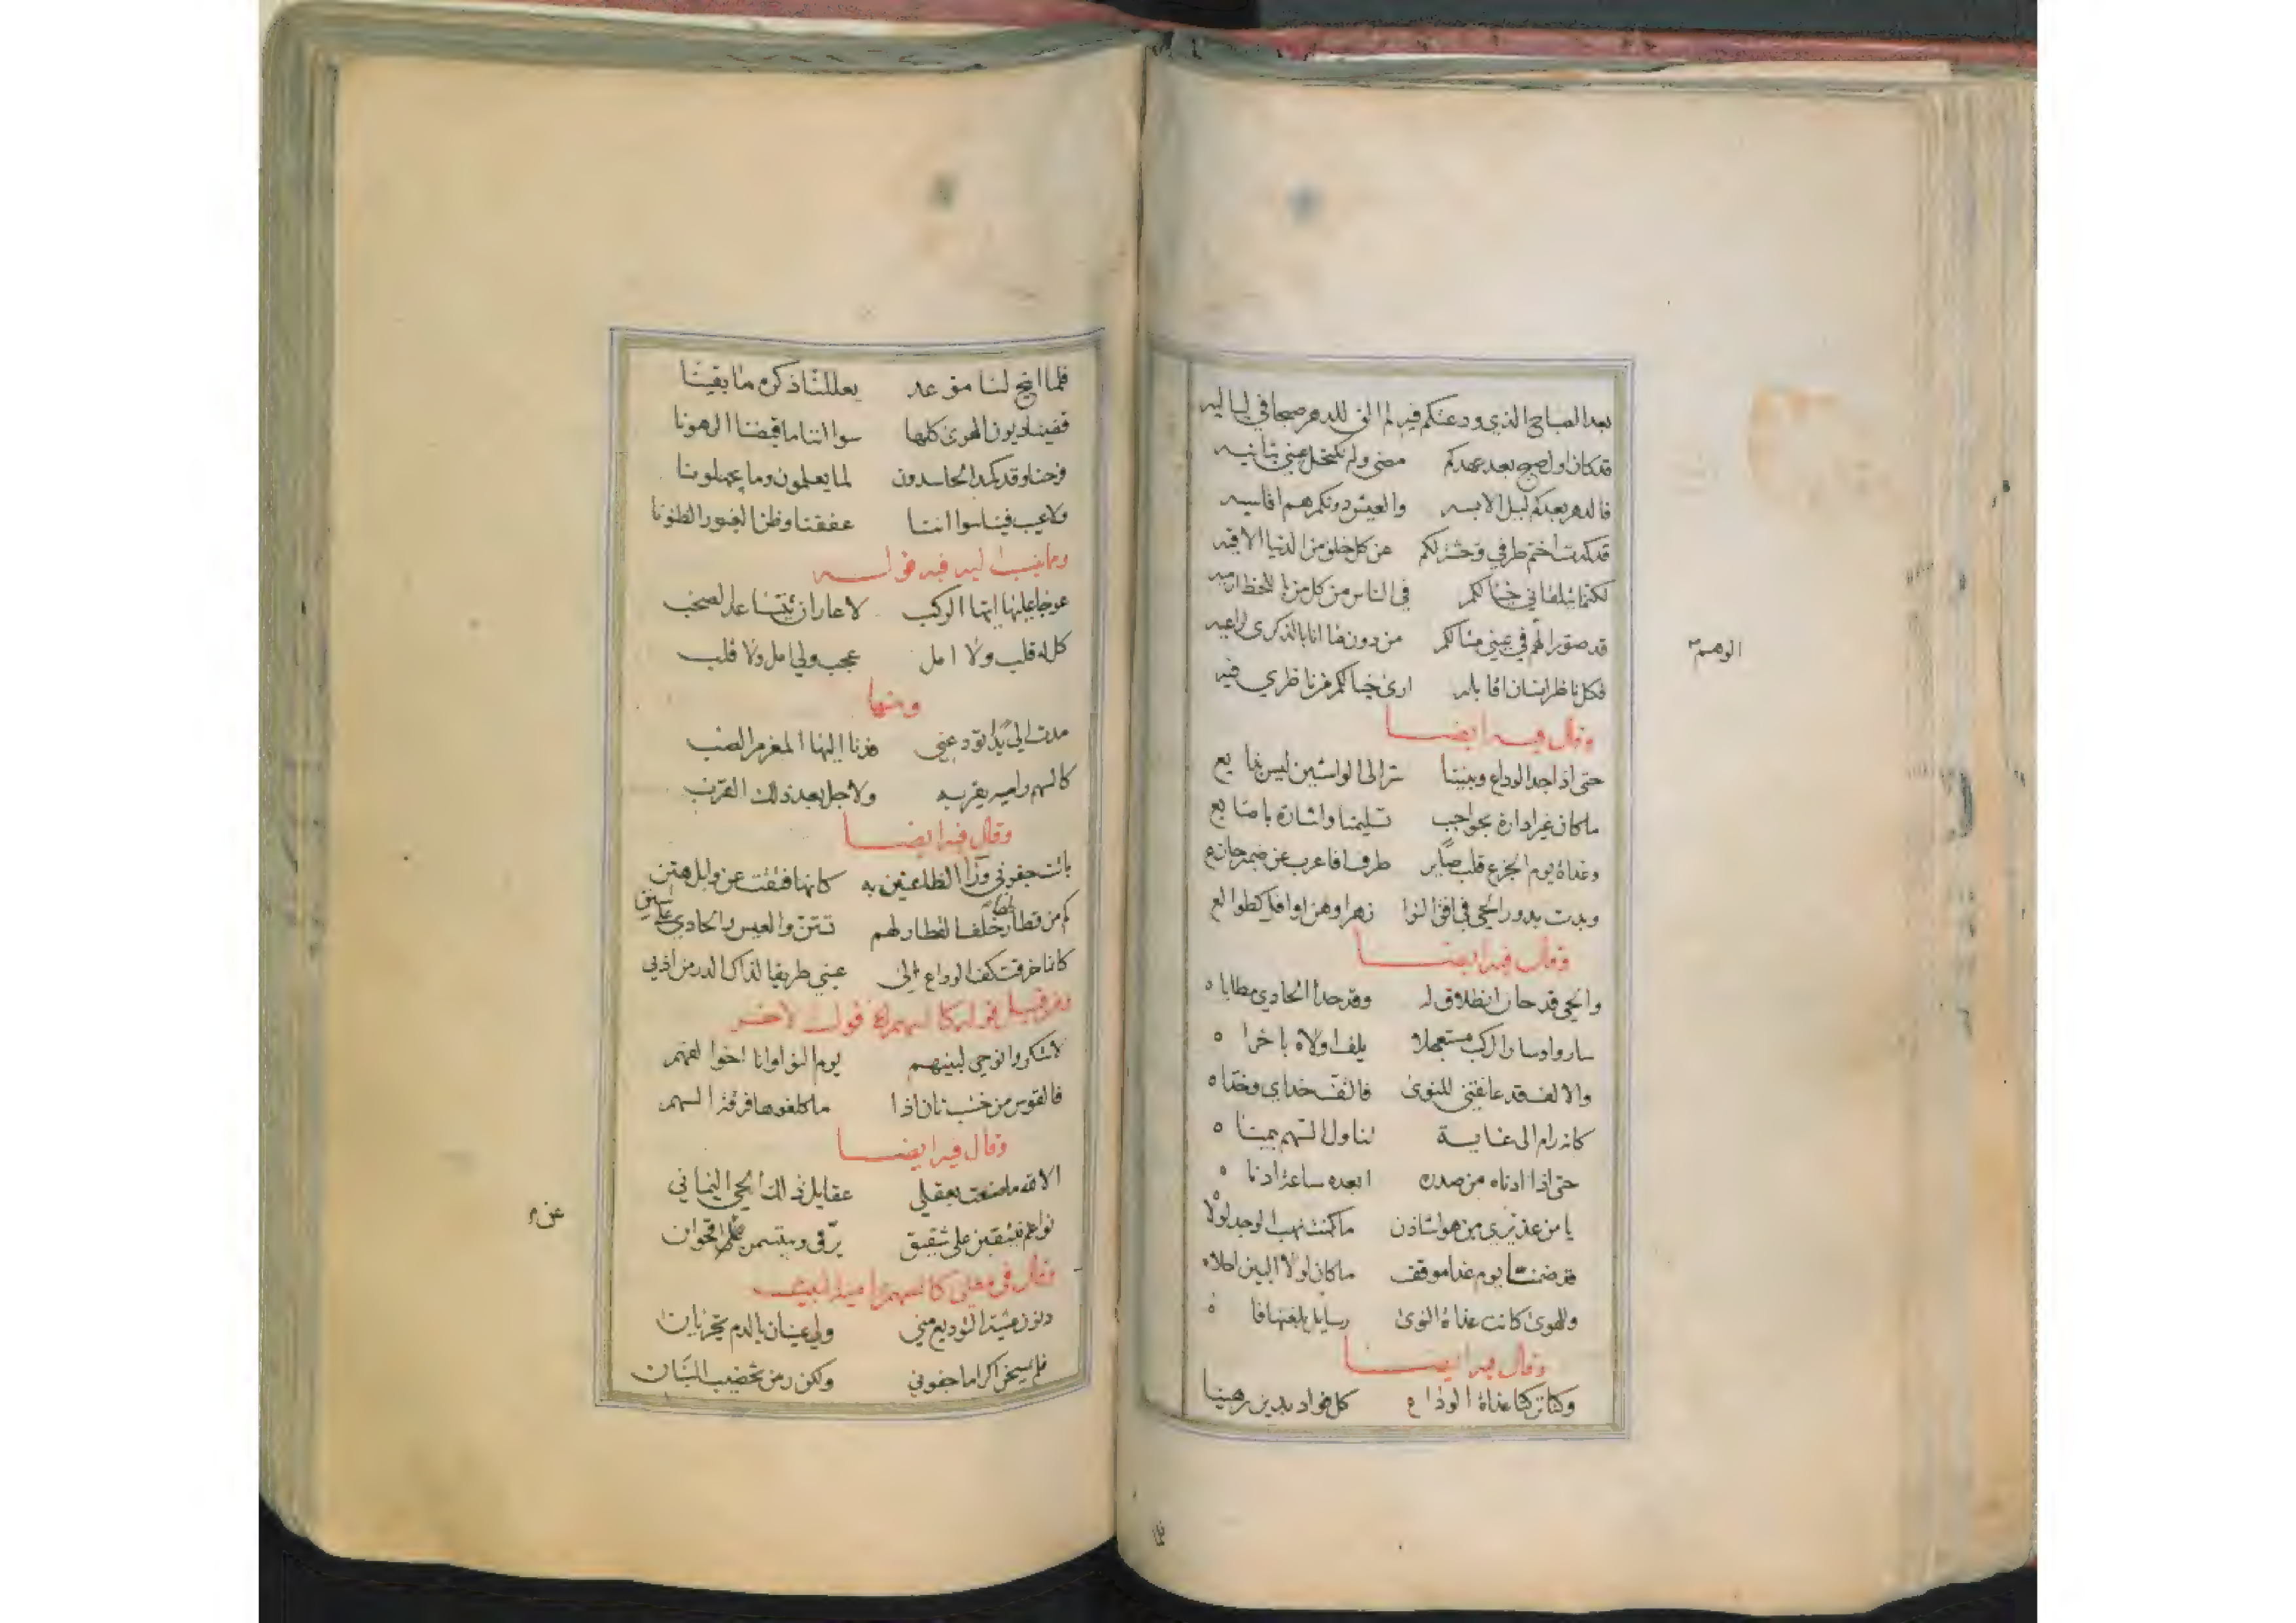 بعد الصباح الذي ودعتكم فيه لم الق للدهر صبحا في لياليه
قد كان اول صبح بعد عهدكم مضى ولم تكتحل عيني بثانيه
فالدهر بعدكم ليل الابسه والعيش دونكم هم اقاسيه
قد كدت اختم طرفي وحشة لكم عن كل خلق من الدنيا الاقيه
لكنما يلقاني خيالكم في الناس من كل من باللحظ ارميه
قد صور لكم في عيني مثالكم من دون ما انا بالذكرى اراعيه
الوهم
فكل ناظر انسان اقابله ارى خيالكم من ناظري فيه
وقال فيه ايضا
حتى اذا جد الوداع وبيننا سر الى الواشين ليس بذايع
ما كان غير ادارة بحواجب تسليمنا واشارة باصابع
وغداة يوم الجزع قلب صابر طرفا فاعرب عن ضمير جازع
وبدت بدور الحي في افق النوا زهرا وهن اوافل كطوالع
وقال فيه ايضا
والحي قد حان انطلاق له وقد حدا الحادي مطاياه
ساروا وسار الركب مستعجلا يلف اولاه باخراه
والالف قد عانقني للنوى فالتف خداي وخداه
كانه رام الى غاية تناول السهم بيمناه
حتى اذا ادناه من صدره ابعده ساعة ادناه
يا من عذيري من هوا شادن ما كنت نهب الوجد لولاه
قد ضمنا يوم غدا موقف ما كان لولا البين احلاه
وللهوى كانت غداة النوى رسايل بلغتها فاه
وقال فيه ايضا
وكنا تركنا غداة الوداع كل فواد بدين رهينا
فلما
فلما اتيح لنا موعد يعللنا ذكره ما بقينا
قضينا ديون الهوى كلها سوا اننا ما قبضنا الرهونا
فرحنا وقد كمد الحاسدون لما يعلمون وما يجهلونا
ولا عيب فينا سوا اننا عففنا وظن الغيور الظنونا
ومما ينسب اليه فيه قوله
عوجا عليها ايها الركب لا عار ان يتساعد الصحب
كل له قلب ولا امل عجب ولي امل ولا قلب
ومنها
مدت الي يدا تودعني فدنا اليها المغرم الصب
كالسهم راميه يقربه ولاجل بعد ذلك القرب
وقال فيه ايضا
باتت جفوني ورا الظاعنين به كانها فتقت عن وابل هتن
كم من قطار خلف القطار لهم تتن والعيس والحادي على سنن
كانما خرقت كف الوداع الى عيني طريقا لذاك الدر من اذني
ومن قبيل قوله كالسهم راميه قول الاخر
لا تنكروا نوحي لبينهم يوم النوا وانا اخوا لهمم
فالقوس من خشب تان اذا ما كلفوها فرقة السهم
وقال فيه ايضا
الا لله ما صنعت بعقلي عقايل ذلك الحي اليماني
نواعم ينتقبن على شقيق يرف ويبتسمن عن اقحوان
عن
وقال في معنى كالسهم راميه البيت
دنون عشية التوديع مني ولي عينان بالدم تجريان
فلم يمسحن اكراما جفوني ولكن رمن تخضيب البنان